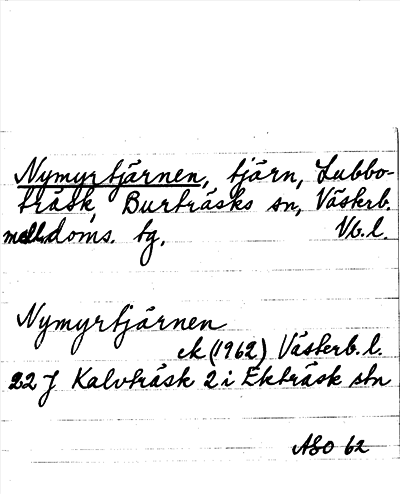 Nymyrtjärnen, tjärn, Lubbo-
träsk, Burträsks sn, Västerb.
mell. doms. tg, Vb.l.
Nymyrtjärnen
ek (1962) Västerb.l.
22 J Kalvträsk 2 i Ekträsk stn
ASO 62